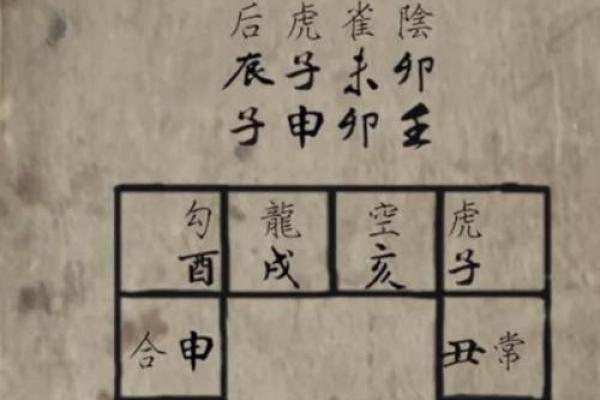 后虎雀陰
辰子未卯
子申卯壬
勾 龍 空 虎
酉 戌 亥 子
合申 丑常